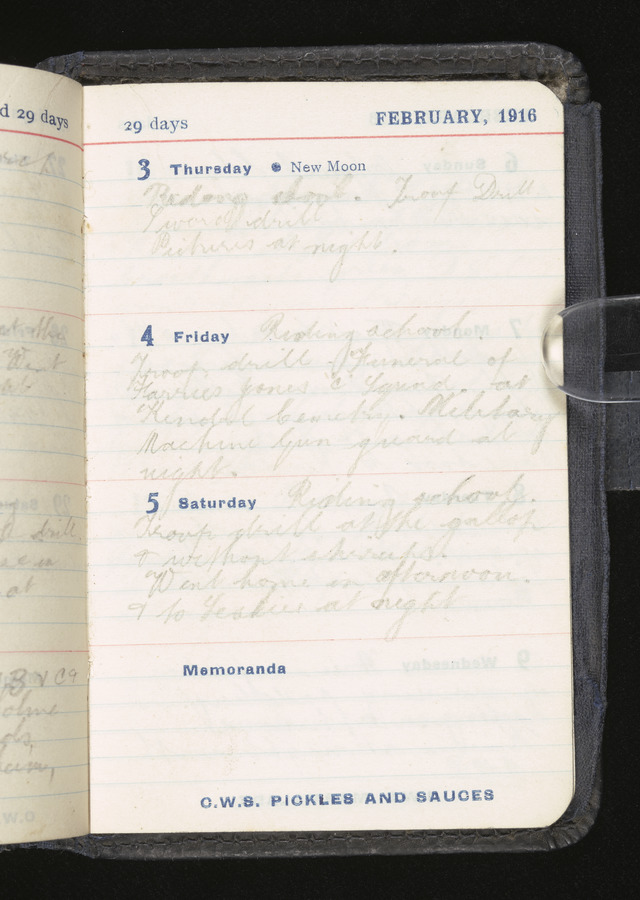 d 29 days
29 days
FEBRUARY, 1916
3 Thursday New Moon
Riding school. Troop Drill
Sword drill
Pictures at night.
4 Friday Riding school.
Troop drill. Funeral of
Farrier Jones "C" Squad. at
Kendal Cemetry. Military
Machine Gun guard at
night.
5 Saturday Riding school.
Troop drill at the gallop
& without stirrups.
Went home in afternoon.
& to at night
Memoranda
C.W.S. PICKLES AND SAUCES
drill
at